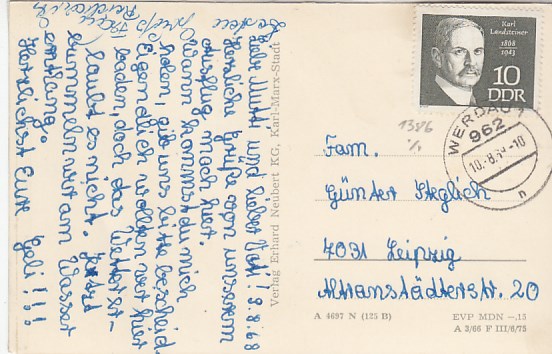 Liebe Mutti und lieber Vati! 8.8.68
Herzliche Grüße von unserem
Ausflug nach hier.
Wann kommst du mich
holen, gib uns bitte bescheid.
Eigendlich wollen wir hier
baden, doch das Wetter er-
laubt es nicht. Jetzt
bummeln wir am Wasser
entlang.
Herzlichst Eure Geli!!!
Gruß Frau
Verlag Erhard Neubert KG, Karl-Marx-Stadt
Karl
Landsteiner
1868
1943
10
DDR
WERDAU 1
962
10.-8.68-10
n
1386
Fam.
Günter Steglich
7031 Leipzig
Altranstädterstr. 20
A 4697 N (125 B)
EVP MDN –.15
A 3/66 F III/6/75